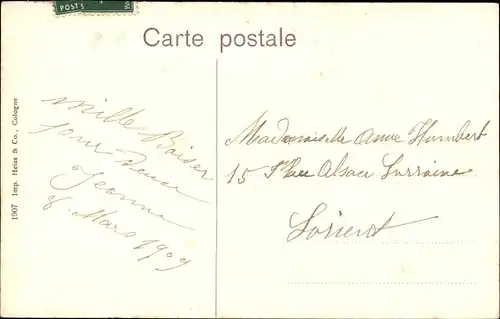 POSTS
Carte postale
1907 Imp. Heiss & Co., Cologne
mille Baiser
pour
Jeanne
8. Mars 1909
Mademoiselle Anne Humbert
15 Place Alsace Lorraine
Lorient